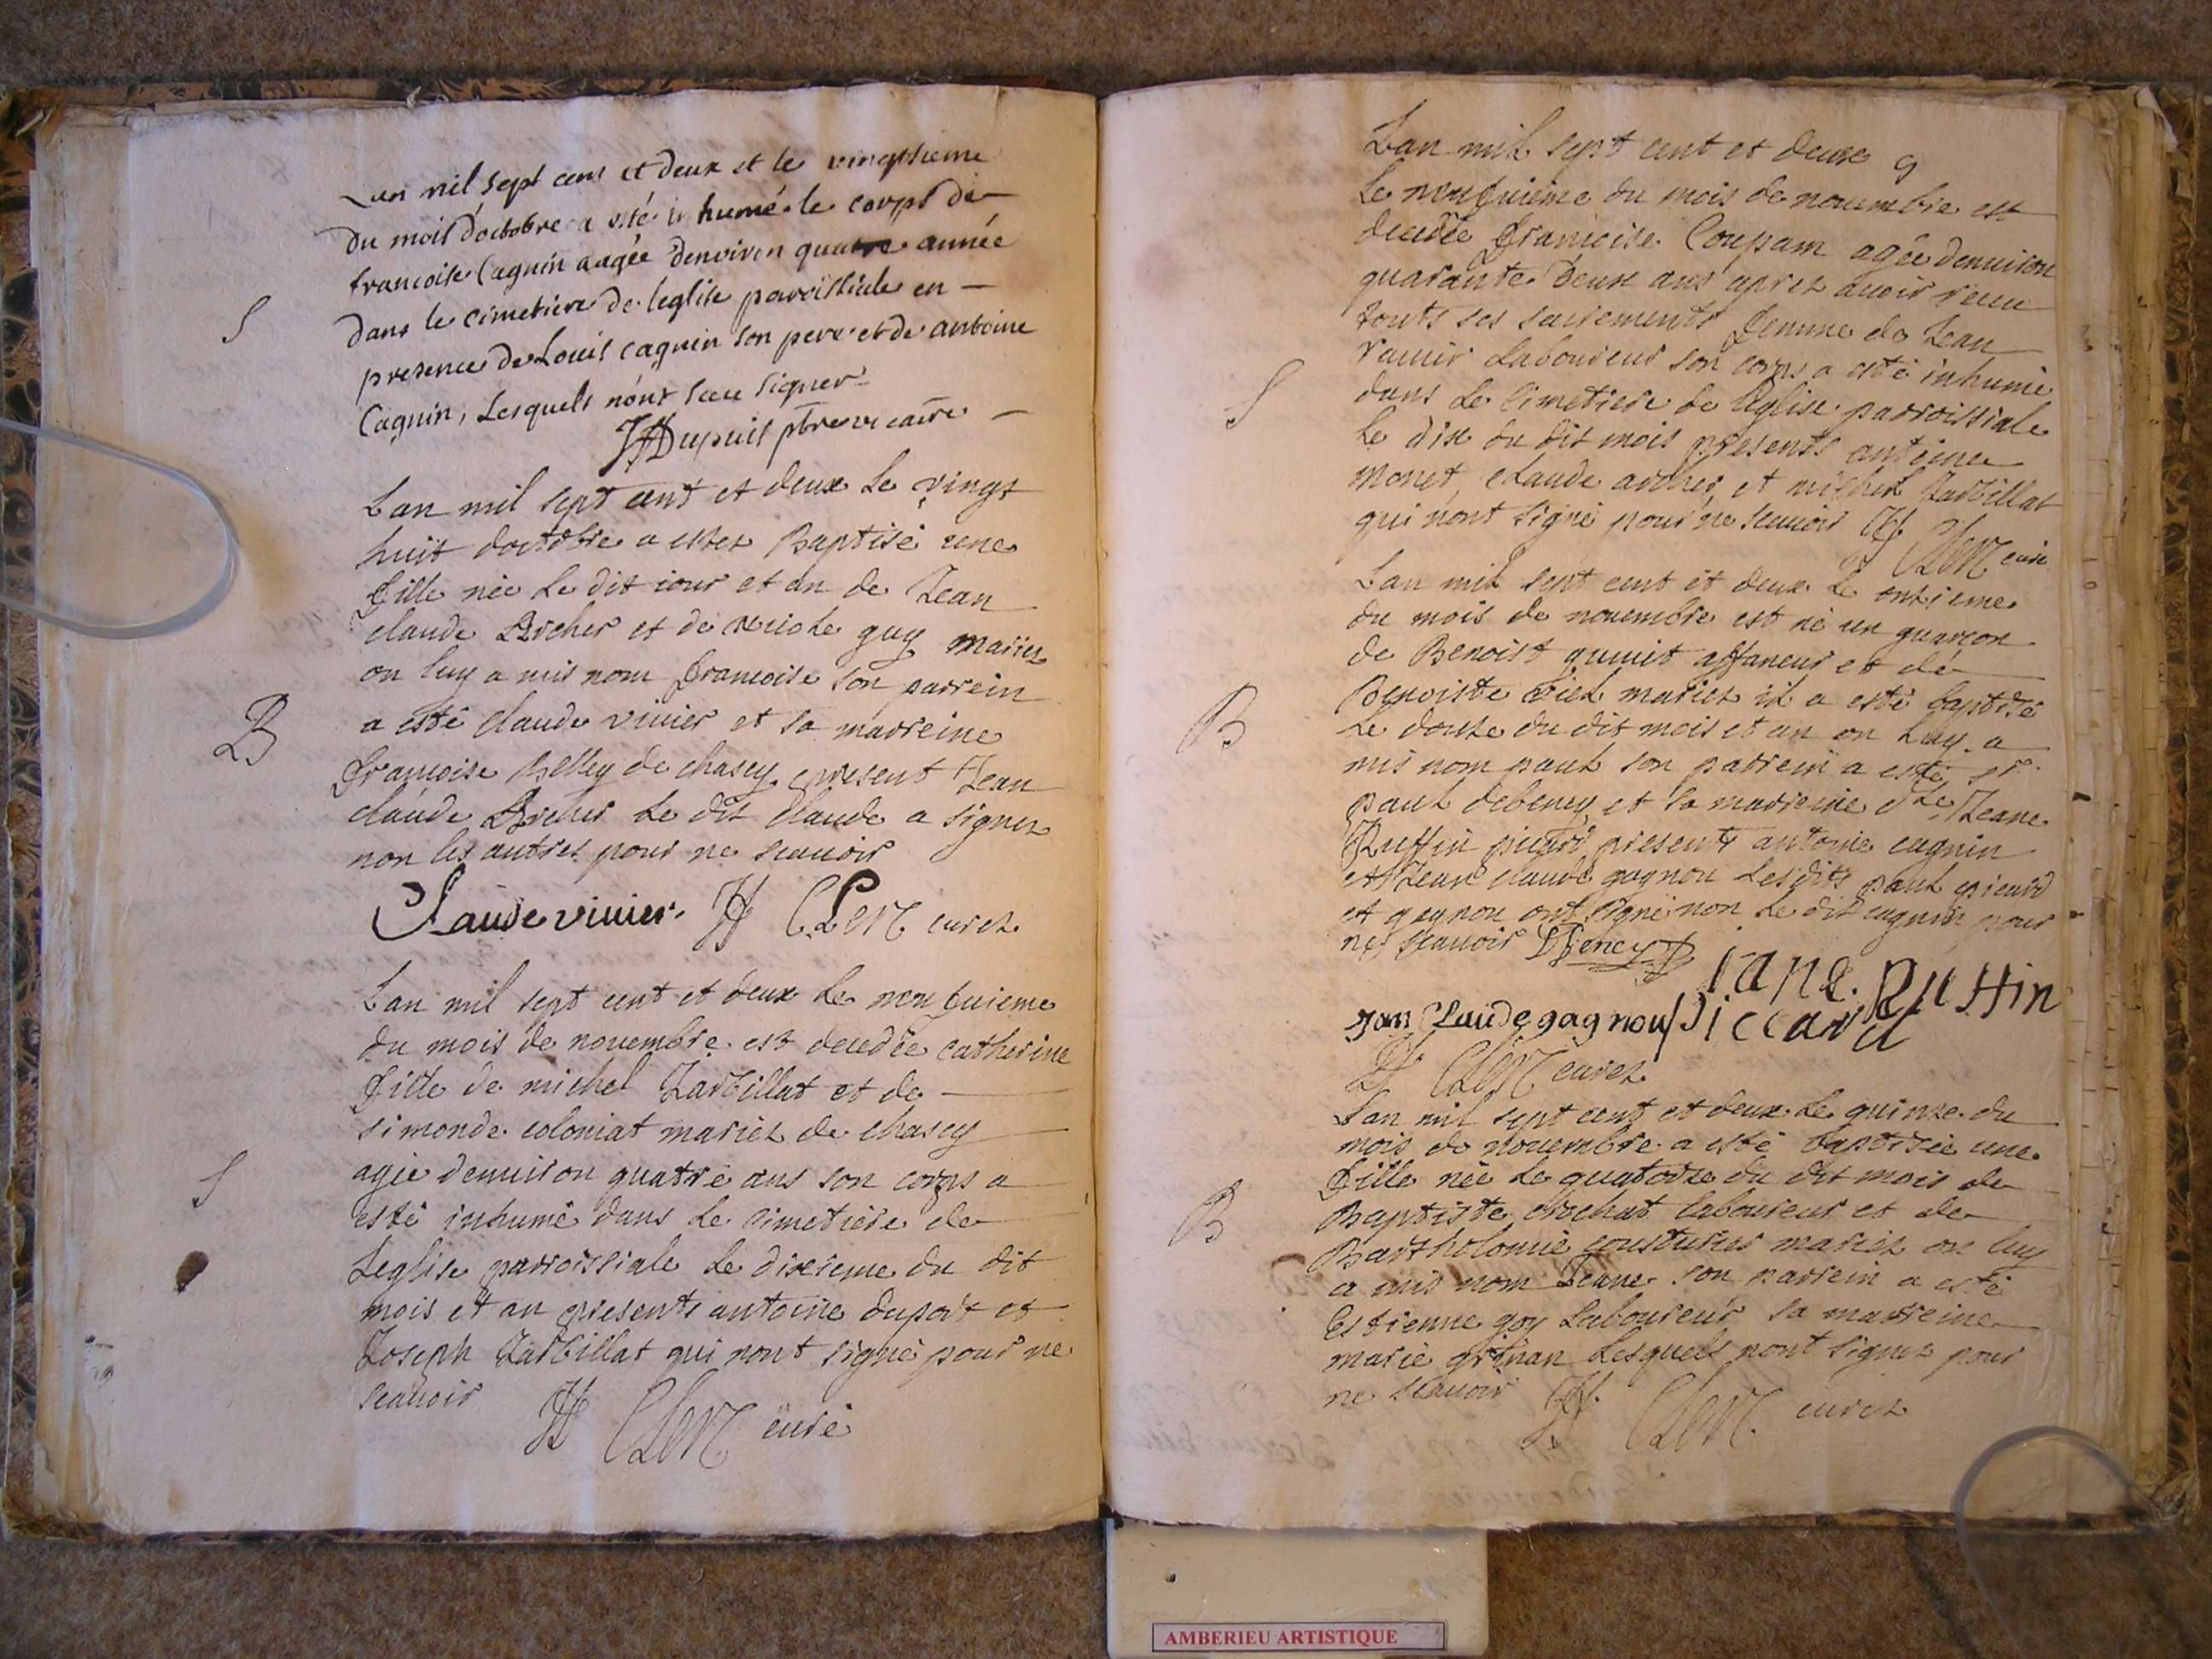 Lan mil sept cens et deux et le vingtsieme
du mois doctobre a esté inhumé le corps de
francoise Cagnin aagée denviron quatre année
dans le cimetiere de leglise paroissiale en
S
presence de Louis cagnin son pere et de antoine
Cagnin, Lesquels nont sceu signer
Dupuis ptre vicaire
Lan mil sept cent et deux Le vingt
huit doctobre a estez Baptisé une
fille née Le dit iour et an de Jean
claude Archer et de guy mariez
on luy a mis nom francoise son parrein
B
a esté claude vivier et sa marreine
francoise Belley de chasey present Jean
claude Archer Le dit claude a signez
non les autres pour ne scauoir
Claude vivier. Clerc curez
Lan mil sept cent et deux Le neufuieme
du mois de nouembre est decedée catherine
fille de michel Tarbillat et de
simonde coloniat mariez de chasey
S
agée denuiron quatre ans son corps a
esté inhumé dans Le cimetiere de
Leglise parroissiale Le dixieme du dit
mois et an presents antoine duport et
Joseph Tarbillat qui nont signé pour ne
scauoir
Clerc curé
Lan mil sept cent et deux
Le neufuieme du mois de nouembre est
decedée francoise Coupam agée denuiron
quarante deux ans aprez auoir receu
touts ses sacrements femme de Jean
Laboureur son corps a esté inhumé
S
dans Le Cimetiere de leglise parroissiale
Le dix du dit mois presents antoine
monet, claude archer, et michel Tarbillat
qui nont signé pour ne scauoir
Clerc curé
Lan mil sept cent et deux Le onzieme
du mois de nouembre est né un guarcon
de Benoist affaneur et de
B
Benoiste mariez il a esté baptisé
Le douze du dit mois et an on Luy a
mis nom paul son parrein a esté sr
paul debeney et sa marreine dlle Jeane
Ruffin picard presents antoine cagnin
et Jean claude gagnon Lesdits paul picard
et gagnon ont signé non Le dit cagnin pour
ne scauoir DBeney
iane. Ruffin
Jan Claude gagnon Piccard
Clerc curez
Lan mil sept cent et deux Le quinze du
mois de nouembre a esté baptisée une
fille née Le quatorze du dit mois de
B
Baptiste crochat Laboureur et de
Bartholomie cousturier mariez on luy
a mis nom Jeane son parrein a esté
Estienne goy Laboureur sa marreine
marie Lesquels nont signez pour
ne scauoir
Clerc curez
AMBERIEU ARTISTIQUE